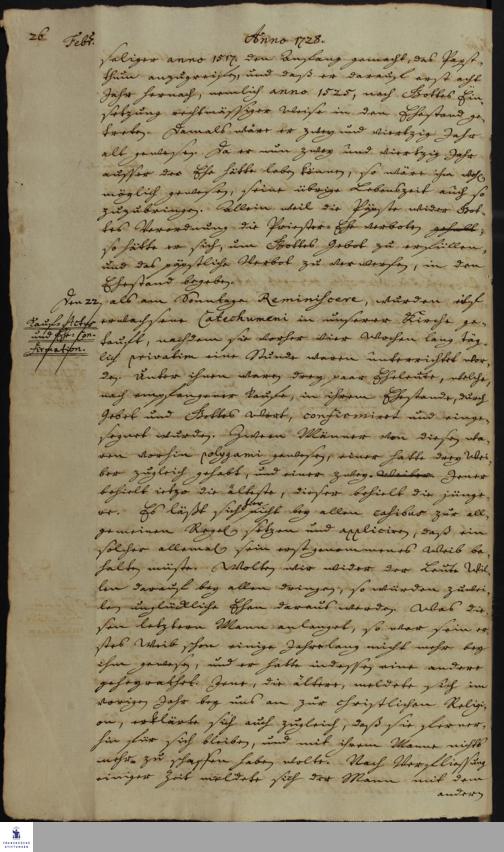 26 Febr. Anno 1728.
seliger anno 1517. den Anfang gemacht, das Papst-
thum anzugreiffen, und daß er darauf erst acht
Jahr hernach, nemlich anno 1525, nach Gottes Ein-
setzung rechtmässiger Weise in den Ehestand ge-
treten. Damals wäre er zwey und viertzig Jahr
alt gewesen. Da er nun zwey und viertzig Jahr
ausser der Ehe hätte leben können, so wäre ihm wohl
möglich gewesen, seine übrige Lebenszeit auch so
zuzubringen. Allein weil die Päpste wider Got-
tes Verordnung die Priester-Ehe verboten
so hätte er sich, um Gottes Gebot zu erfüllen,
und das päpstliche Verbot zu verwerfen, in den
Ehestand begeben.
Den 22, als am Sonntage Reminiscere, wurden
Tauf-Actus
und Ehe-Con-
firmation.
erwachsene Catechumeni in unserer Kirche ge-
tauft, nachdem sie vorher vier Wochen lang täg-
lich privatim eine Stunde waren unterrichtet wor-
den. Unter ihnen waren drey paar Eheleute, welche,
nach empfangener Taufe, in ihrem Ehestande, durch
Gebet und Gottes Wort, confirmiret und einge-
segnet wurden. Zween Männer von diesen wa-
ren vorhin polygami gewesen, einer hatte drey Wei-
ber zugleich gehabt, und einer zwey. Jener
behielt ietzo die älteste, dieser behielt die jünge-
re. Es läßt sich nicht bey allen casibus zur all-
gemeinen Regel setzen und appliciren, daß ein
solcher allemal sein erstgenommenes Weib be-
halten müste. Wolten wir wider der Leute Wil-
len darauf bey allen dringen, so würden zuwei-
len unglückliche Ehen daraus werden. Was die-
sen letztern Mann anlanget, so war sein er-
stes Weib schon einige Jahrelang nicht mehr bey
ihm gewesen, und er hatte indessen eine andere
geheyrathet. Jene, die ältere, meldete sich im
vorigen Jahr bey uns an zur christlichen Religi-
on, erklärte sich auch zugleich, daß sie ferner-
hin für sich bleiben, und mit ihrem Manne nichts
mehr zu schaffen haben wolte. Nach Verfliessung
einiger Zeit meldete sich der Mann mit dem
andern
FRANCKESCHE
STIFTUNGEN